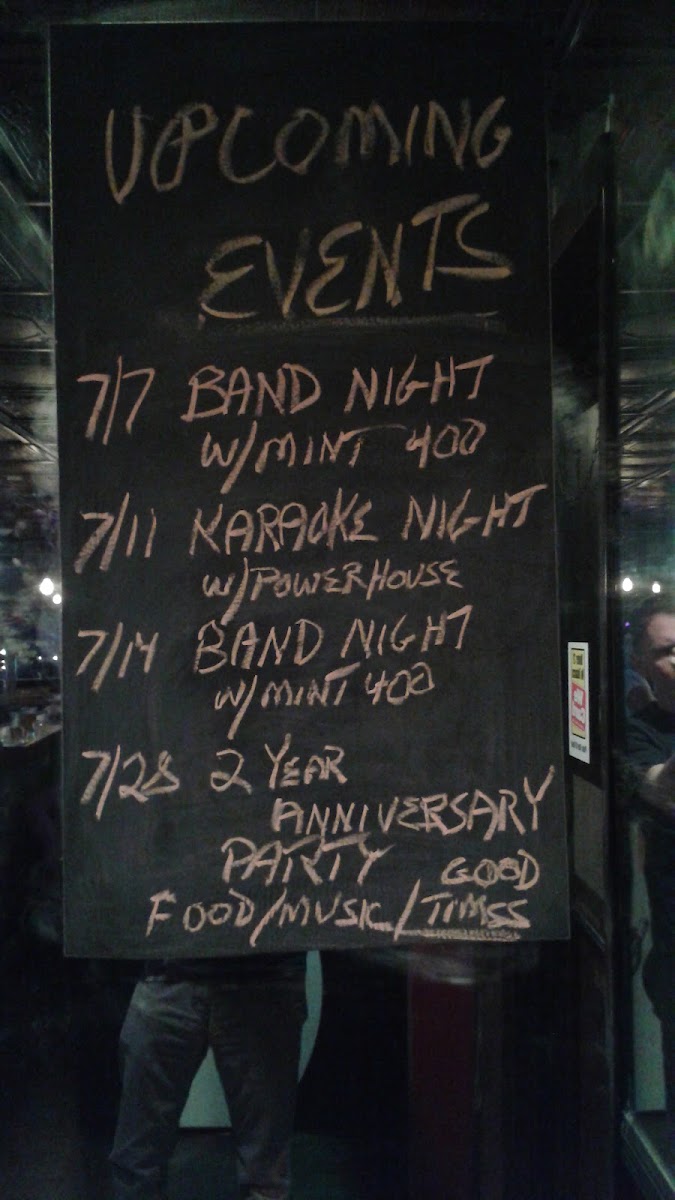 UPCOMING
EVENTS
7/7 BAND NIGHT
W/MINT 400
7/11 KARAOKE NIGHT
W/POWERHOUSE
7/14 BAND NIGHT
W/MINT 400
7/28 2 YEAR
ANNIVERSARY
PARTY GOOD
FOOD/MUSIC/TIMSS